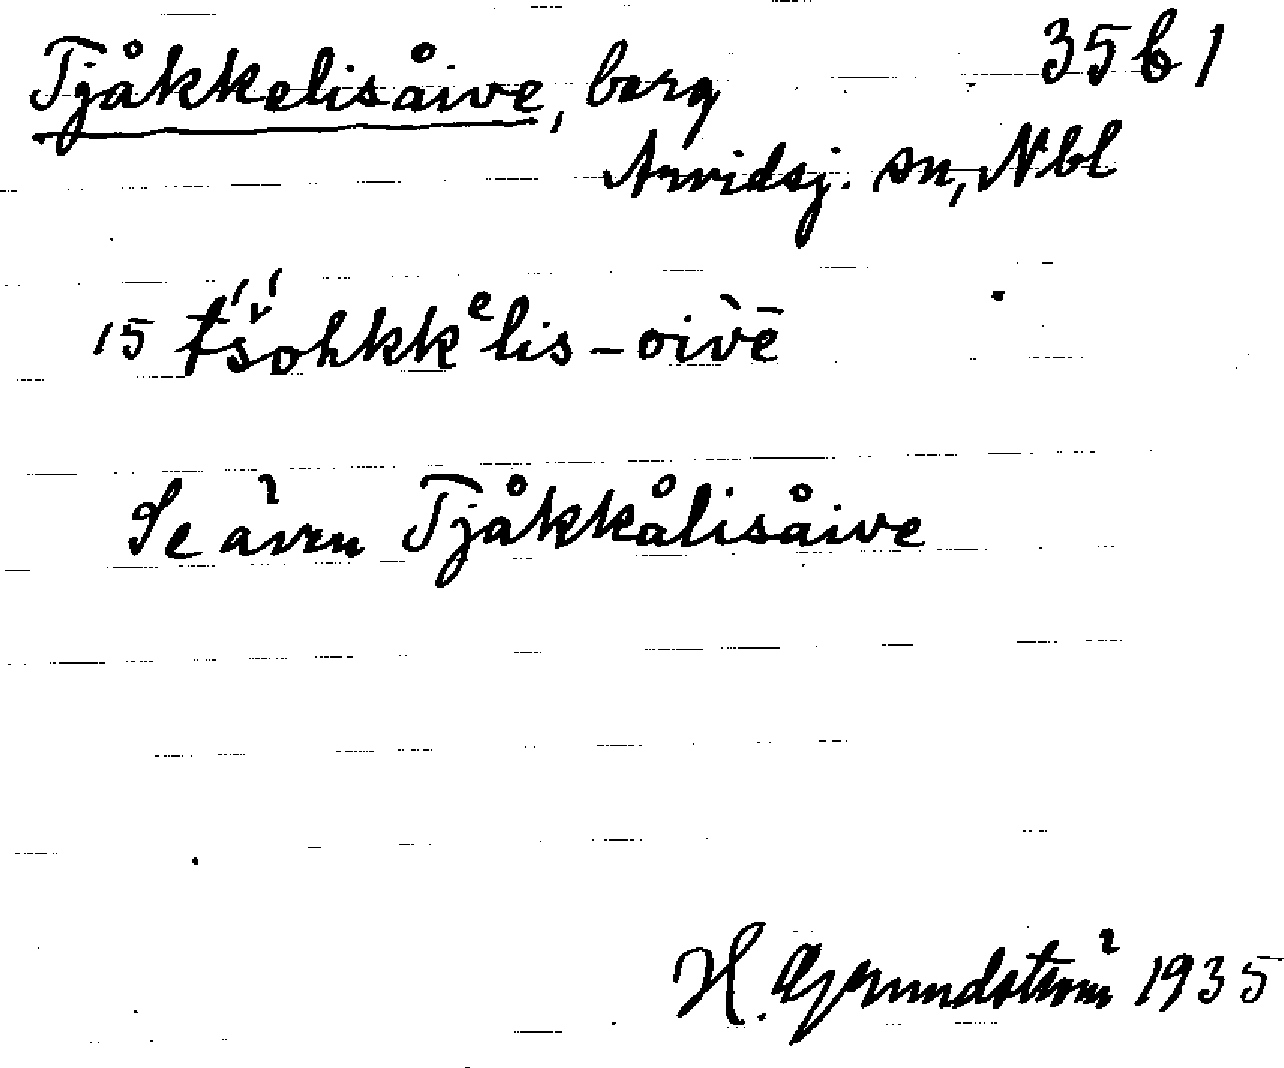 Tjåkkelisåive, berg 35 b 1
Arvidsj. sn, Nbl
15 t'š'ohkkᵉlis-oivē
Se även Tjåkkålisåive
H. Grundström 1935